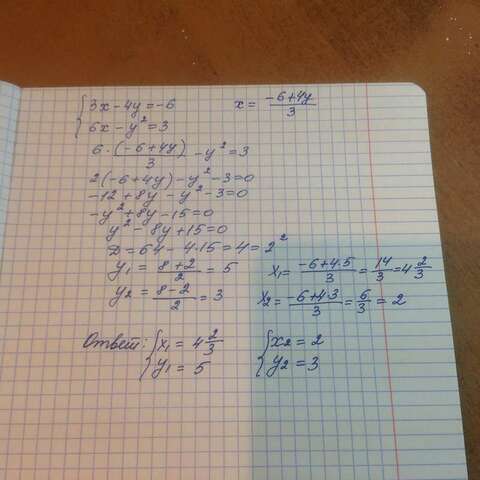 3x - 4y = -6    x = (-6+4y)/3
6x - y² = 3
6·(-6+4y)/3 - y² = 3
2(-6+4y) - y² - 3 = 0
-12 + 8y - y² - 3 = 0
-y² + 8y - 15 = 0
y² - 8y + 15 = 0
D = 64 - 4·15 = 4 = 2²
y₁ = (8+2)/2 = 5    x₁ = (-6+4·5)/3 = 14/3 = 4 2/3
y₂ = (8-2)/2 = 3    x₂ = (-6+4·3)/3 = 6/3 = 2
Ответ: { x₁ = 4 2/3    { x₂ = 2
y₁ = 5    y₂ = 3